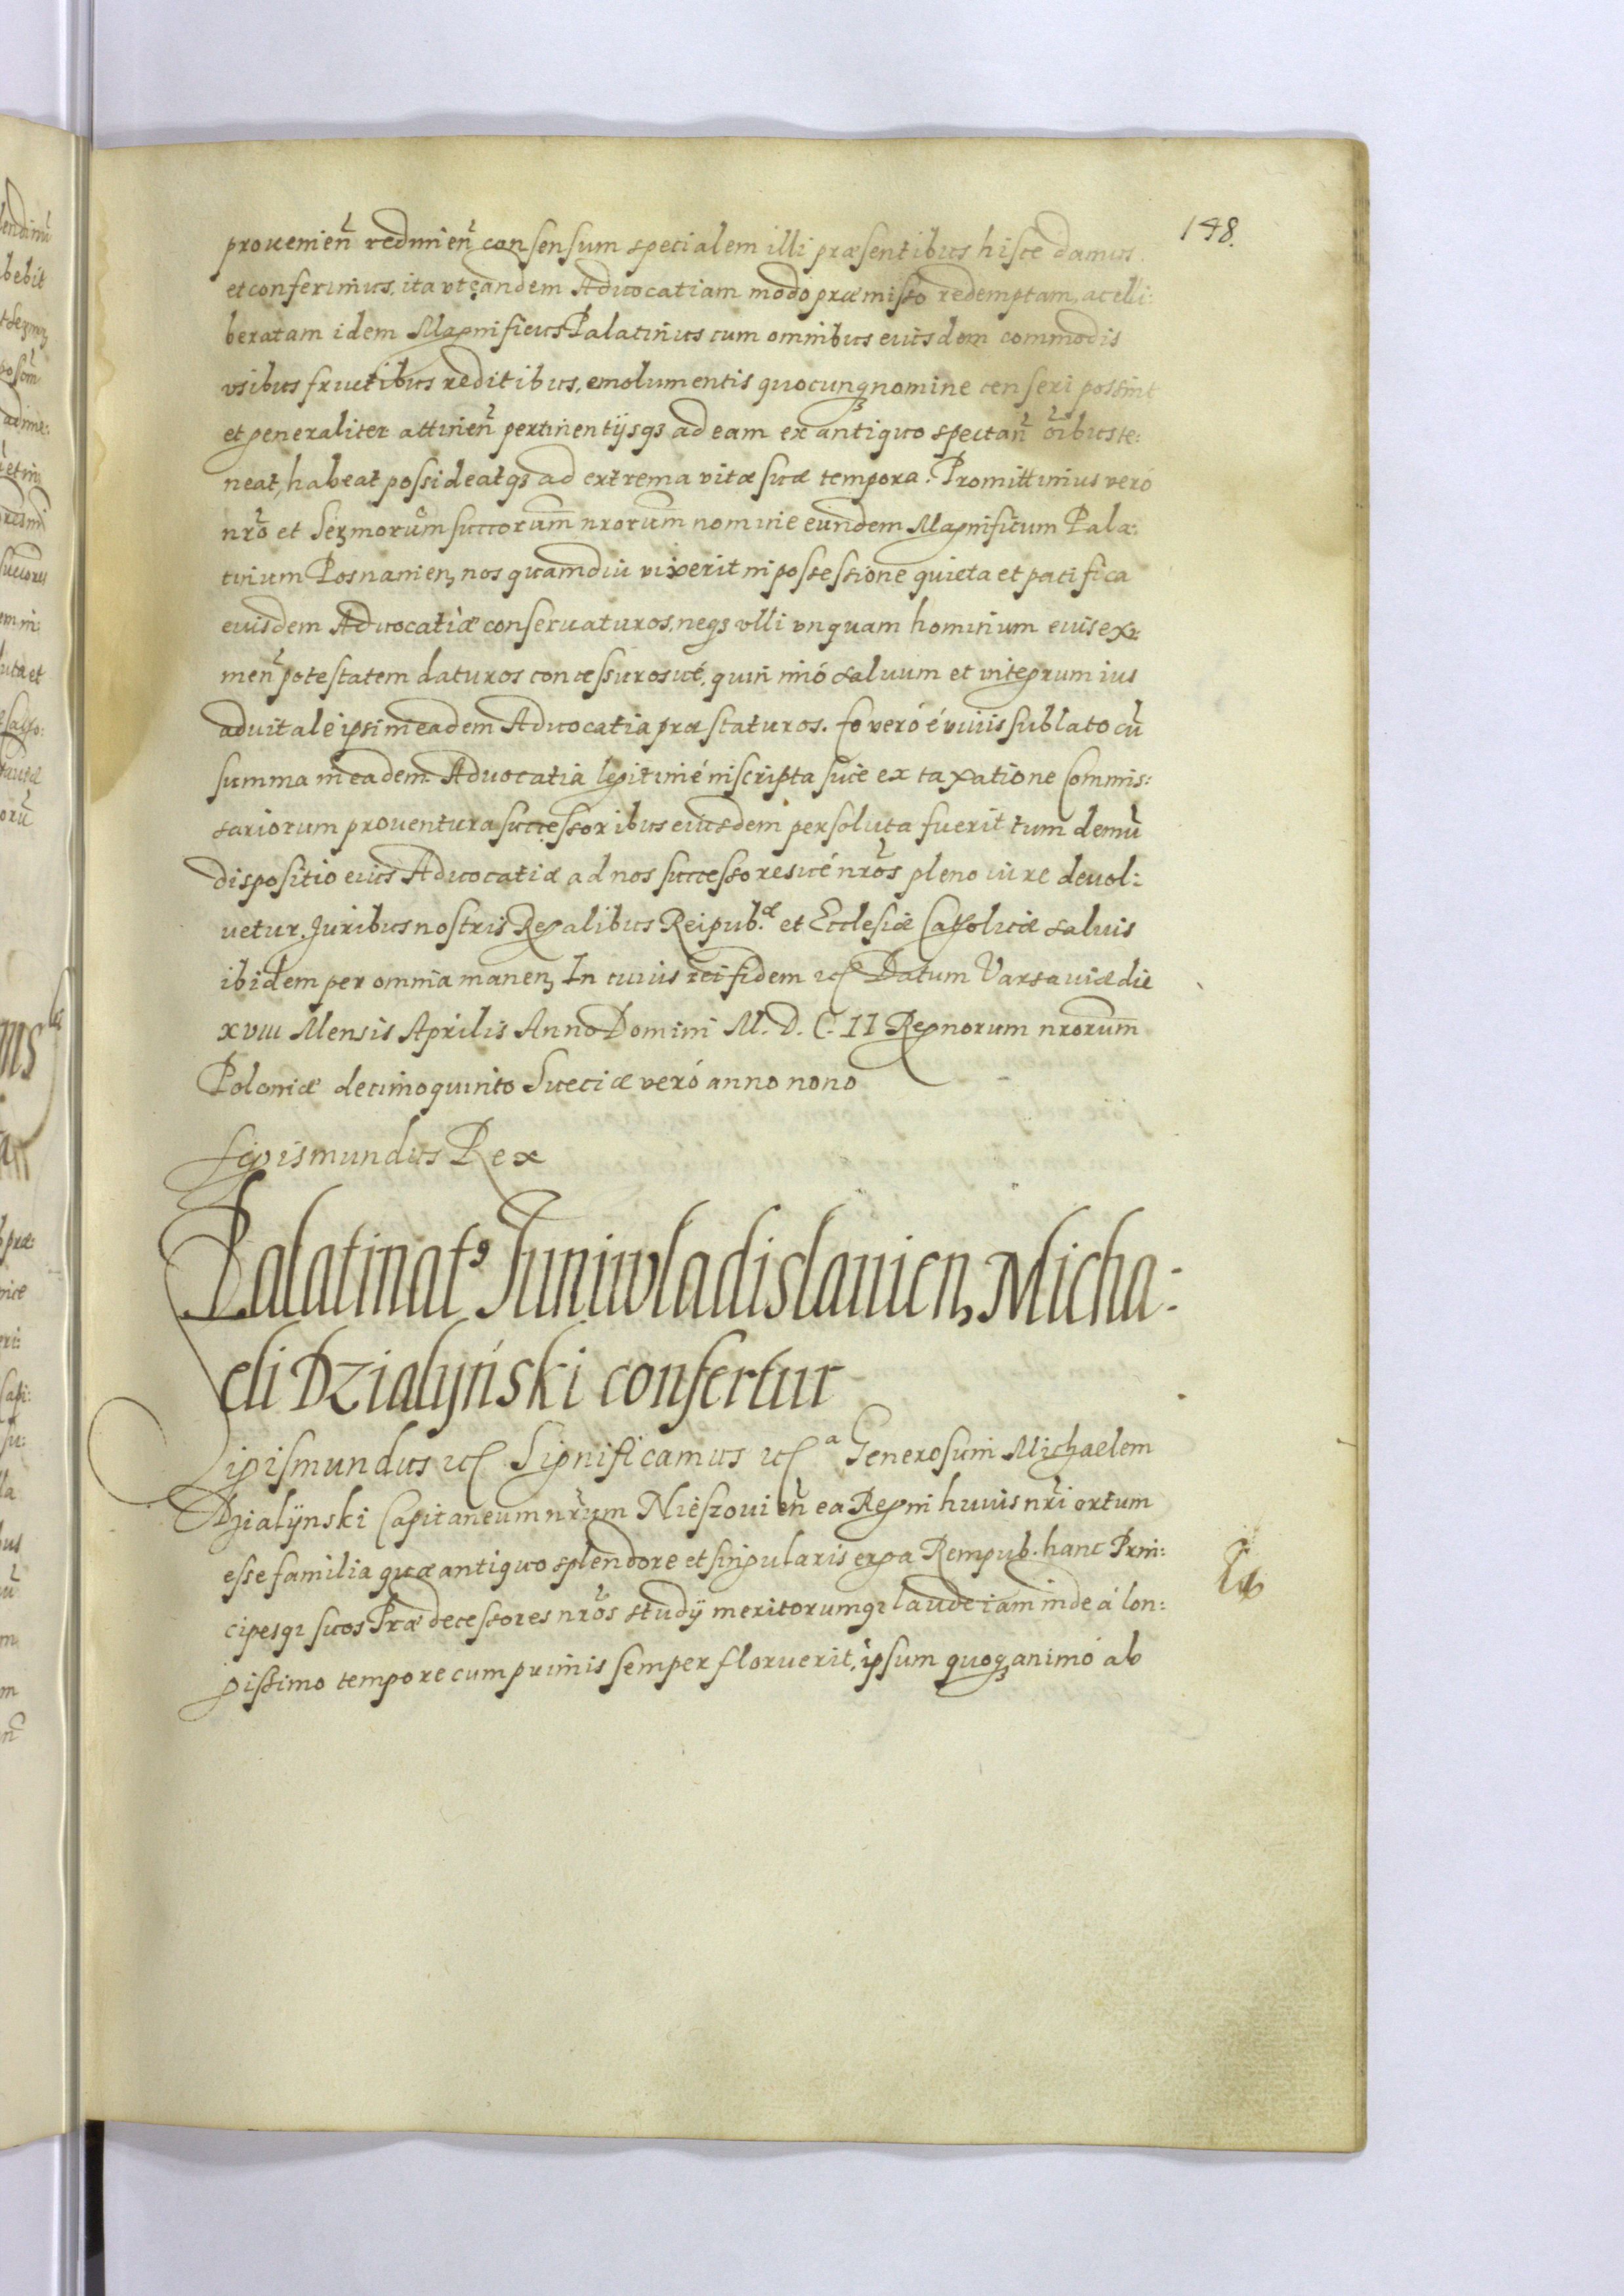 148.
prouenien̄ redimen̄ consensum specialem illi præsentibus hisce damus
et conferimus, ita vt eandem Aduocatiam modo præmisso redemptam, ac elli:
beratam idem Magnificus Palatinus cum omnibus eiusdem commodis
vsibus fructibus reditibus, emolumentis quocunqȝ nomine censeri possint
et generaliter attinen̄ pertinentijsqȝ ad eam ex antiquo spectan̄ oībus te:
neat, habeat possideatqȝ ad extrema vitæ suæ tempora. Promittimus veró
nr̄o et Serᷣmorum̄ succorum̄ nrorum̄ nomine eundem Magnificum Pala:
tinum Posnanienȝ nos quamdiu vixerit in possessione quieta et pacifica
eiusdem Aduocatiæ conseruaturos, neqȝ vlli vnquam hominum eius exi:
men̄ potestatem daturos concessurosué, quin imó saluum et integrum ius
aduitale ipsi in eadem Aduocatia præstaturos. Eo veró é viuis sublato cū
summa in eadem Aduocatia legitimé inscripta siue ex taxatione Commis:
sariorum prouentura successoribus eiusdem persoluta fuerit tum demū
dispositio eius Aduocatiæ ad nos successoresué nr̄os pleno iure deuol:
uetur. Juribus nostris Regalibus Reipub.æ et Ecclesiæ Catholicæ saluis
ibidem per omnia manenȝ In cuius rei fidem etc Datum Varsauiæ die
xviii Mensis Aprilis Anno Domini M. D. C. II Regnorum nrorum̄
Poloniæ decimoquinto Sueciæ veró anno nono
Sigismundus Rex
Palatinatꝰ Juniwladislauienȝ Micha:
eli Dzialyński confertur
Sigismundus etc Significamus etc a Generosum Michaelem
Dzialÿnski Capitaneum nr̄um Nieszouien̄ ea Regni huius nr̄i ortum
esse familia quæ antiquo splendore et singularis erga Rempub. hanc Prin:
cipesqȝ suos Prædecessores nr̄os studÿ meritorumqȝ laude iam inde á lon:
gissimo tempore cum primis semper floruerit, ipsum quoqȝ animó ab